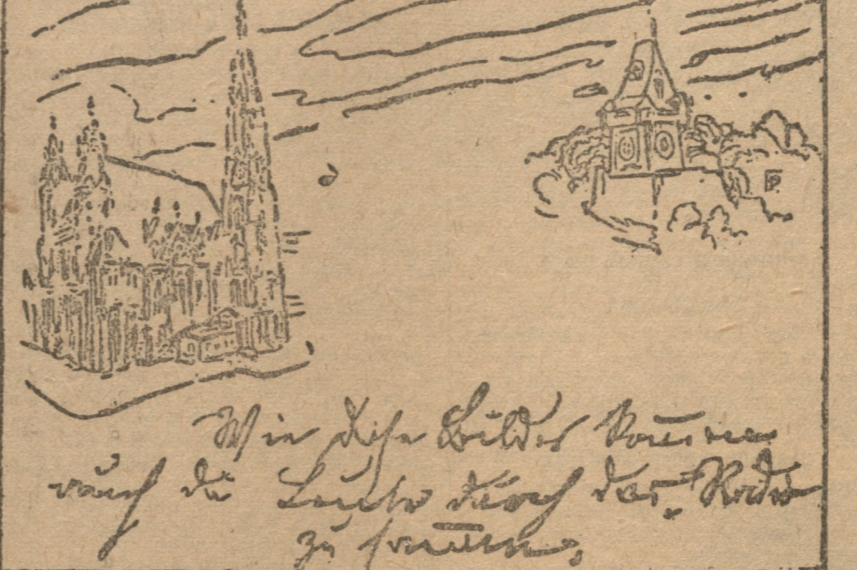 Wie diese Bilder kommen
auch die Leute durch das Radio
zusammen.